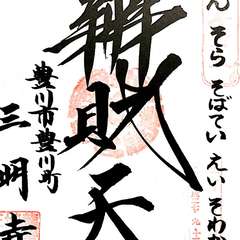 ん そら そばてい えい そわか
辨財天
豊川市豊川町
三明寺